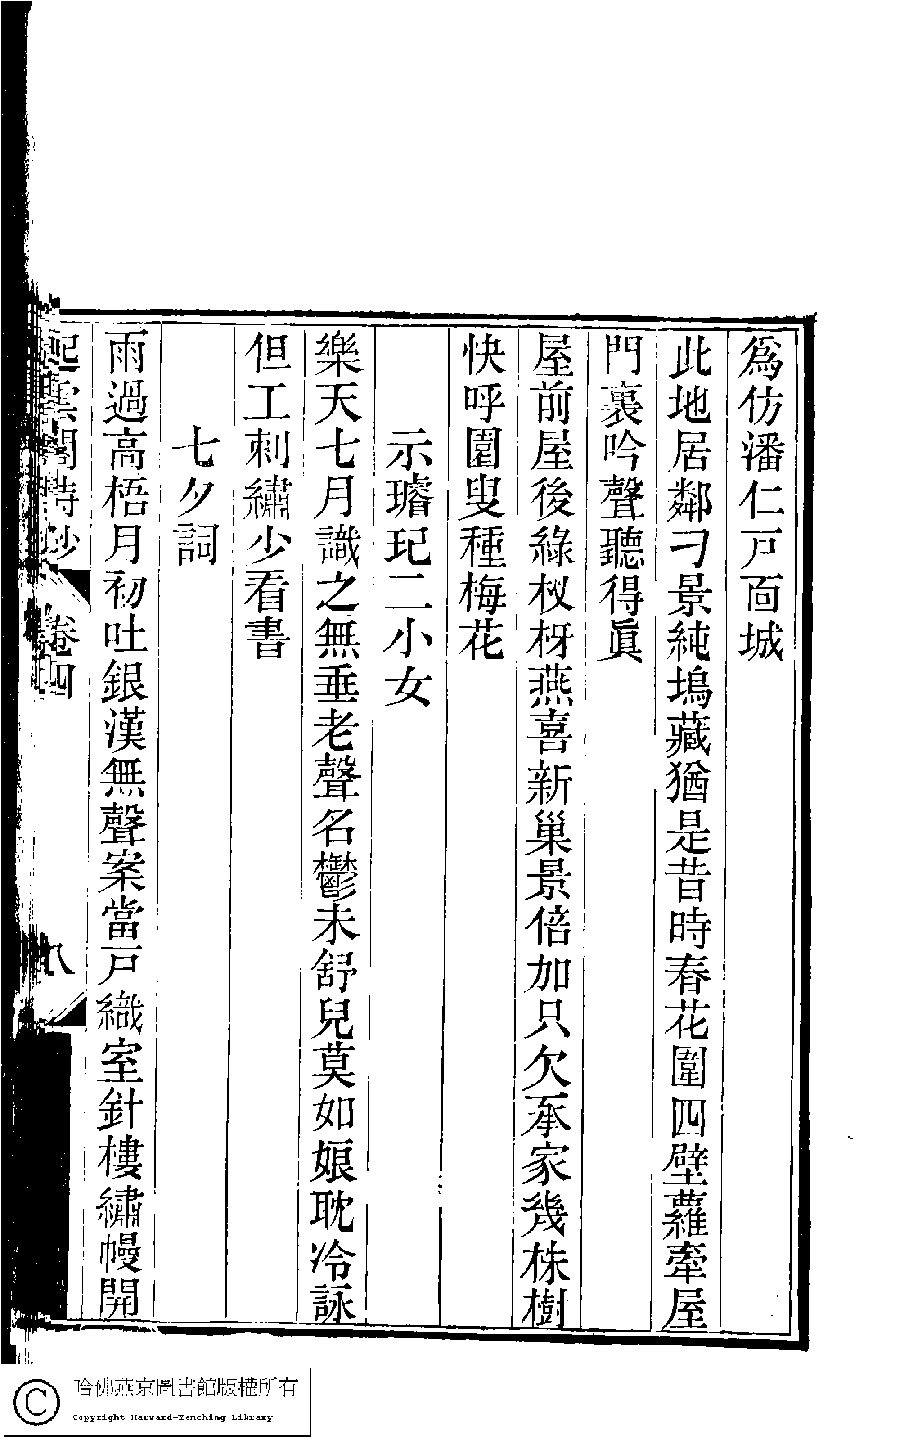 爲仿潘仁戸百城
此地居鄰刁景純塢藏猶是昔時春花圍四壁蘿牽屋
門裏吟聲聽得眞
屋前屋後綠杈枒燕喜新巢景倍加只欠吾家幾株樹
快呼園叟種梅花
示璿玘二小女
樂天七月識之無垂老聲名鬱未舒兒莫如娘耽冷詠
但工刺繡少看書
七夕詞
雨過高梧月初吐銀漢無聲案當戸織室針樓繡幔開
起雲閣詩鈔 卷四 八
哈佛燕京圖書館版權所有
Copyright Harvard-Yenching Library